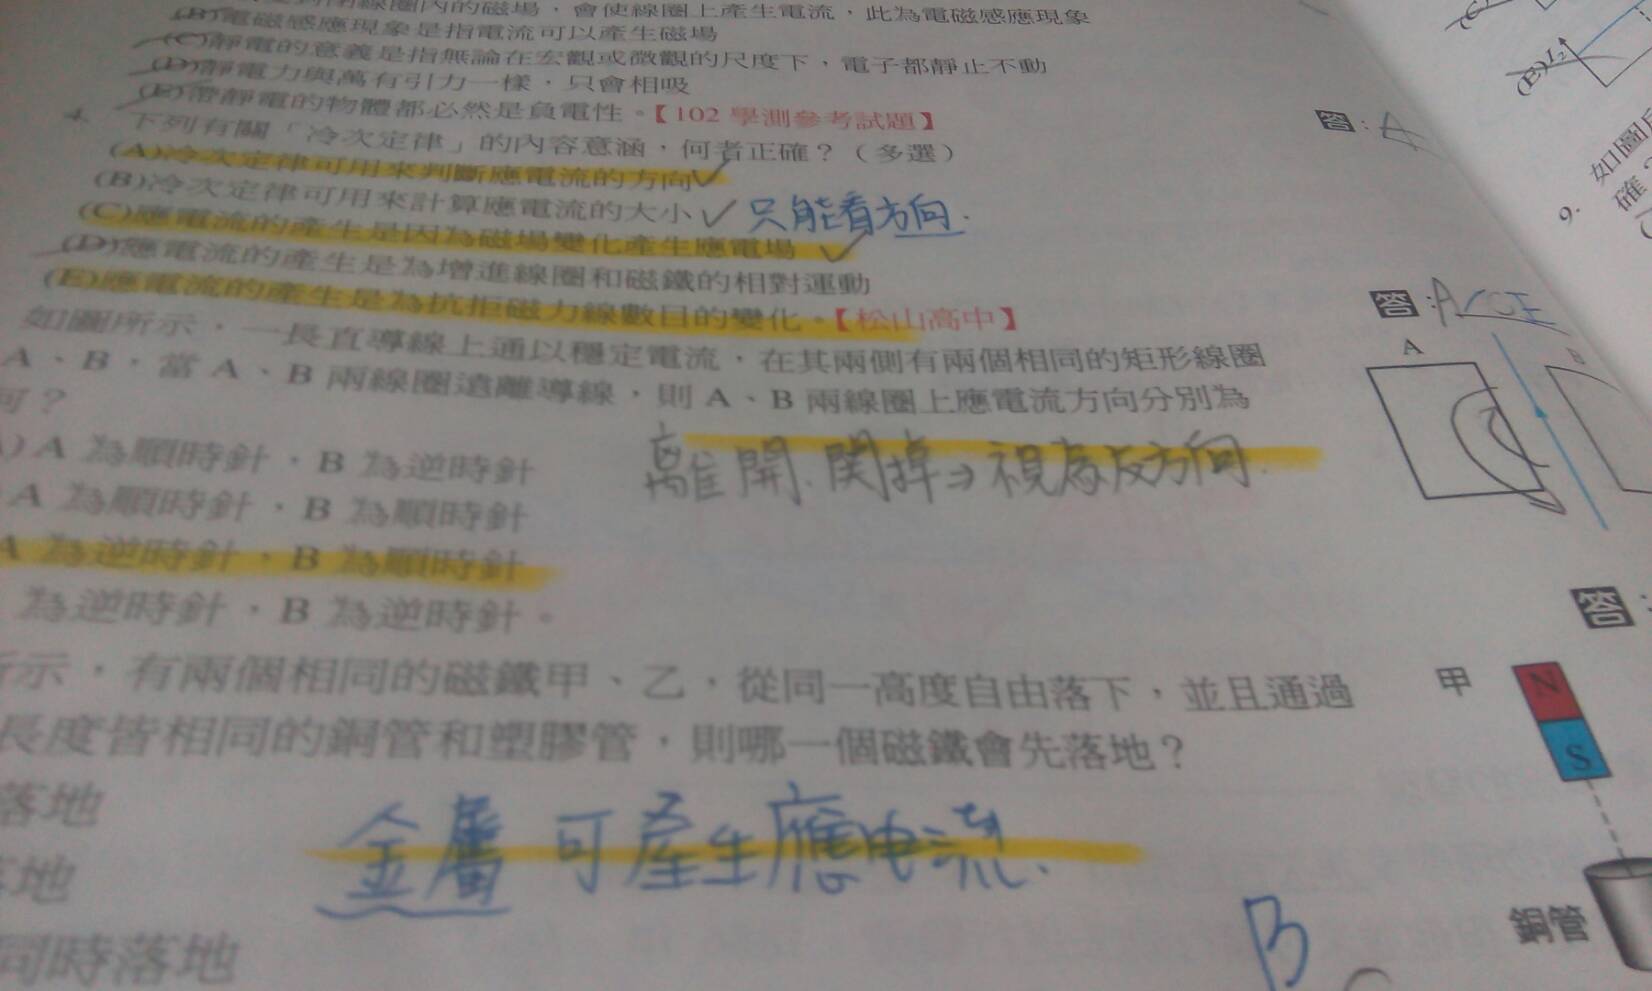 線圈內的磁場，會使線圈上產生電流，此為電磁感應現象
(B)電磁感應現象是指電流可以產生磁場
(C)靜電的意義是指無論在宏觀或微觀的尺度下，電子都靜止不動
(D)靜電力與萬有引力一樣，只會相吸
(E)帶靜電的物體都必然是負電性。【102 學測參考試題】
答：A
4. 下列有關「冷次定律」的內容意涵，何者正確？（多選）
(A)冷次定律可用來判斷應電流的方向✓
(B)冷次定律可用來計算應電流的大小✓ 只能看方向.
(C)應電流的產生是因為磁場變化產生應電場✓
(D)應電流的產生是為增進線圈和磁鐵的相對運動
(E)應電流的產生是為抗拒磁力線數目的變化。【松山高中】
答：ACE
如圖所示，一長直導線上通以穩定電流，在其兩側有兩個相同的矩形線圈
A、B，當 A、B 兩線圈遠離導線，則 A、B 兩線圈上應電流方向分別為
何？
離開.関掉→視為反方向.
A) A 為順時針，B 為逆時針
A 為順時針，B 為順時針
A 為逆時針，B 為順時針
為逆時針，B 為逆時針。
A
B
答：
所示，有兩個相同的磁鐵甲、乙，從同一高度自由落下，並且通過
長度皆相同的銅管和塑膠管，則哪一個磁鐵會先落地？
落地
落地
同時落地
金屬可產生應电流.
B
甲
N
S
銅管
(E) I₂
9.
如圖所
確？